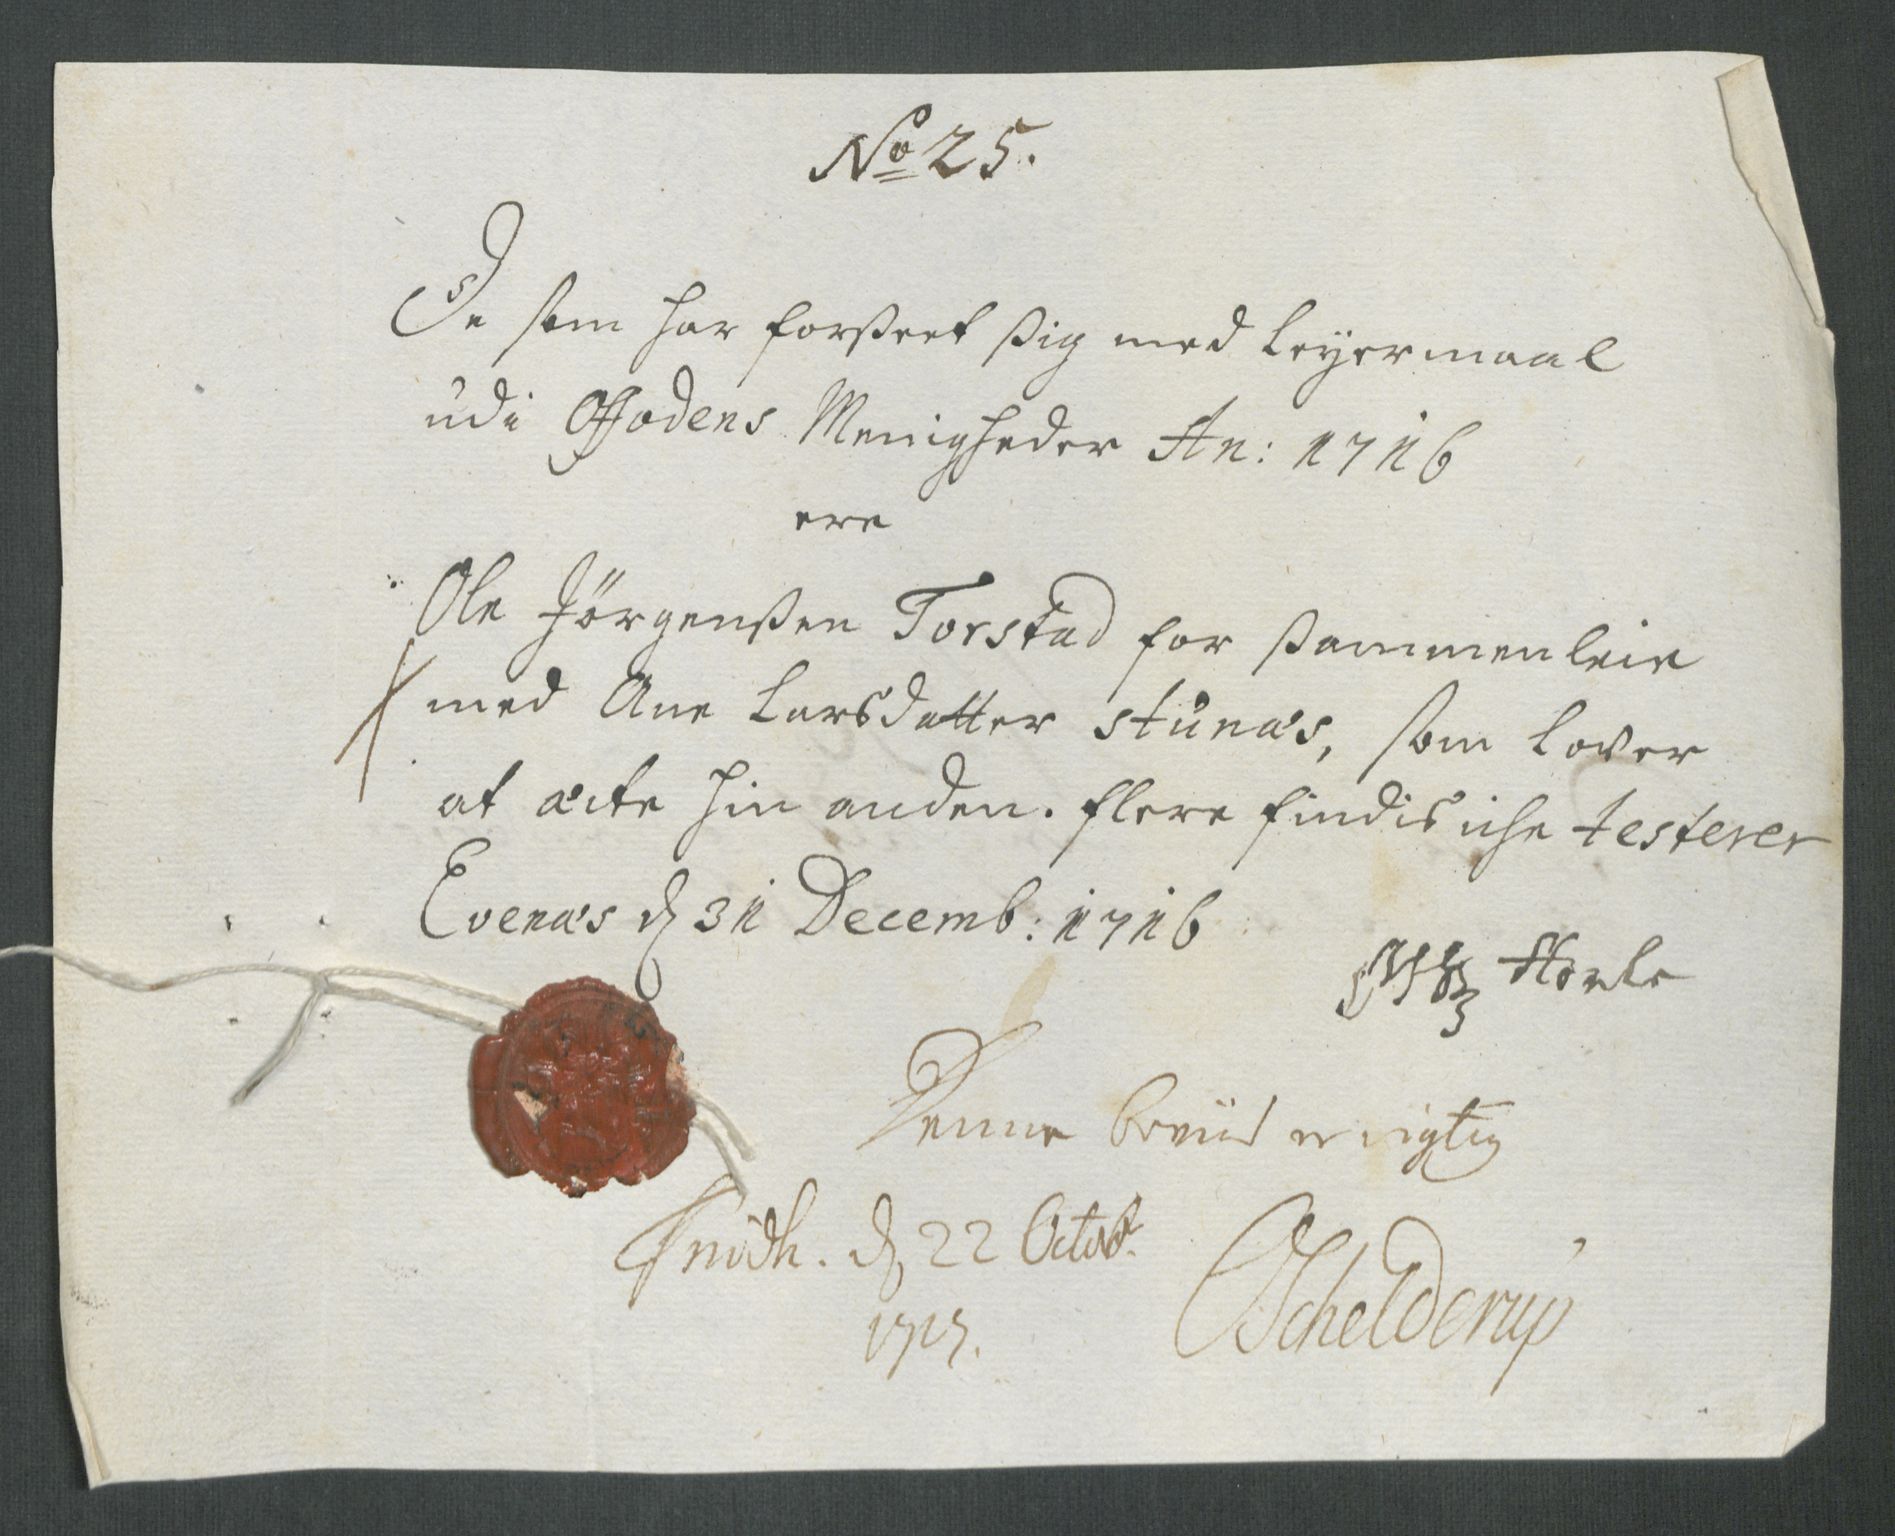 No 25.
De som har forseet sig med Leyermaal
udi Ofodens Menigheder An: 1716
ere
Ole Jörgensen Torstad for sammenleie
med Ane Larsdatter stünæs, som lover
at æcte hin anden. flere findis iche testerer
Evenæs d 31 Decemb: 1716
Denne beviis er rigtig
d 22 Octobr.
1717.
Schelderup